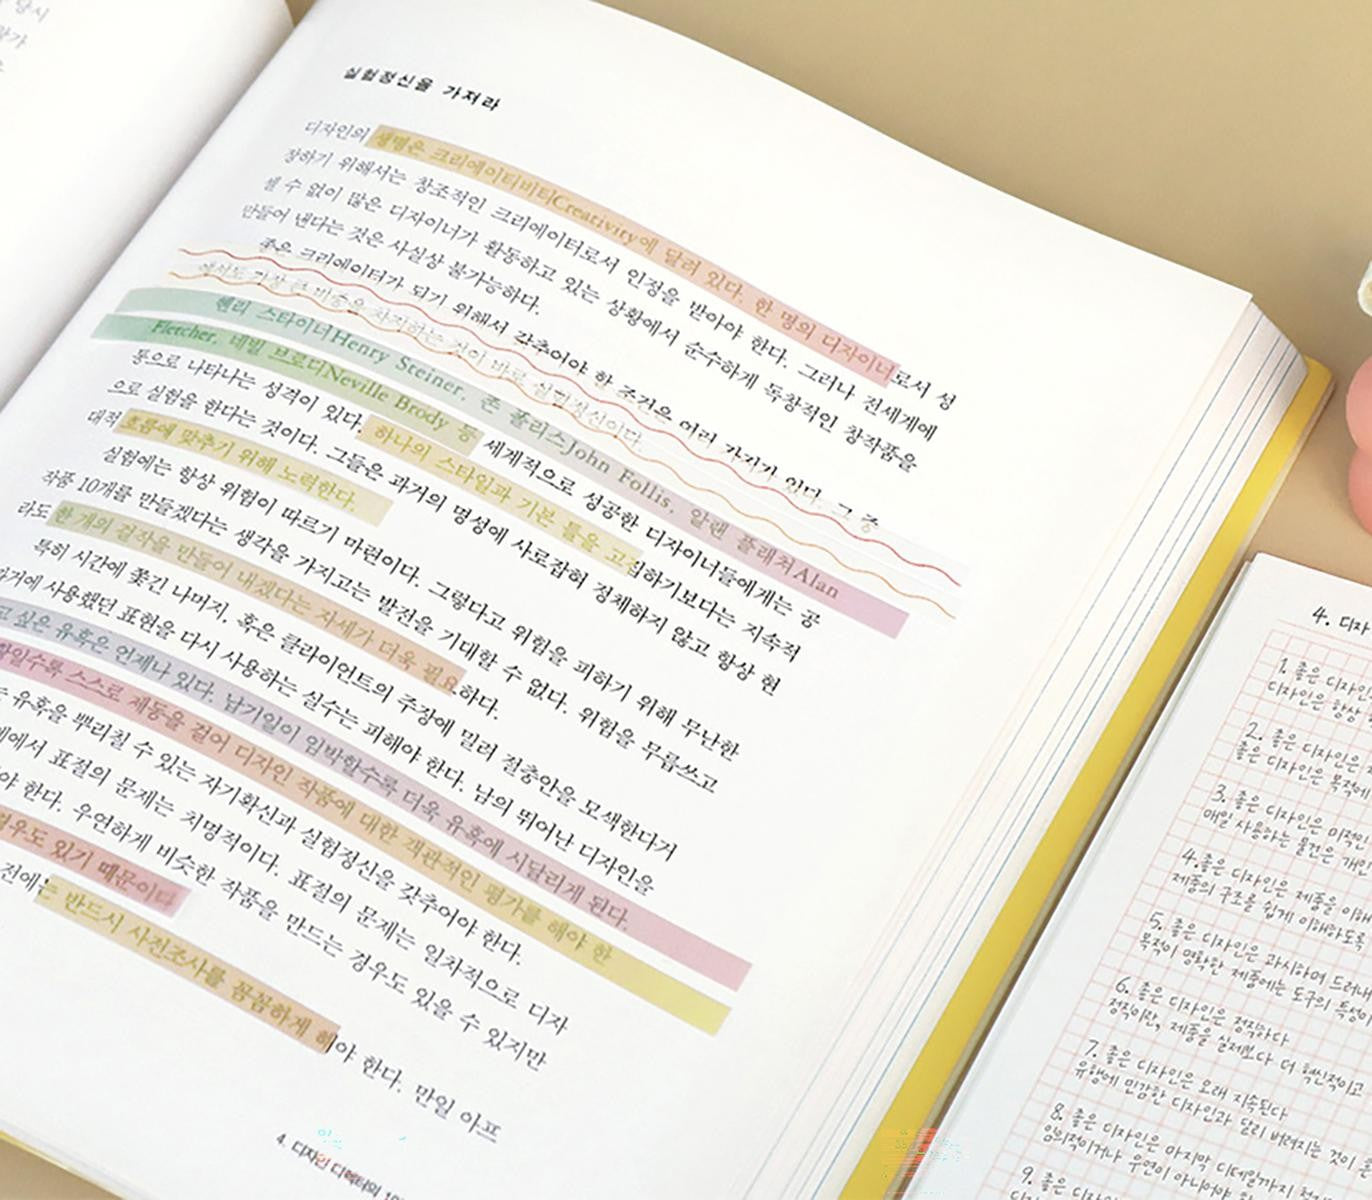 실험정신을 가져라
디자인의 생명은 크리에이터비티Creativity에 달려 있다. 한 명의 디자이너로서 성
장하기 위해서는 창조적인 크리에이터로서 인정을 받아야 한다. 그러나 전세계에
셀 수 없이 많은 디자이너가 활동하고 있는 상황에서 순수하게 독창적인 창작품을
만들어 낸다는 것은 사실상 불가능하다.
좋은 크리에이터가 되기 위해서 갖추어야 할 조건은 여러 가지가 있다. 그 중
에서도 가장 큰 비중을 차지하는 것이 바로 실험정신이다.
헨리 스타이너Henry Steiner, 존 폴리스John Follis, 알랜 플래쳐Alan
Fletcher, 네빌 브로디Neville Brody 등 세계적으로 성공한 디자이너들에게는 공
통으로 나타나는 성격이 있다. 하나의 스타일과 기본 틀을 고집하기보다는 지속적
으로 실험을 한다는 것이다. 그들은 과거의 명성에 사로잡혀 정체하지 않고 항상 현
대적 흐름에 맞추기 위해 노력한다.
실험에는 항상 위험이 따르기 마련이다. 그렇다고 위험을 피하기 위해 무난한
작품 10개를 만들겠다는 생각을 가지고는 발전을 기대할 수 없다. 위험을 무릅쓰고
라도 한 개의 걸작을 만들어 내겠다는 자세가 더욱 필요하다.
특히 시간에 쫓긴 나머지, 혹은 클라이언트의 주장에 밀려 절충안을 모색한다거
과거에 사용했던 표현을 다시 사용하는 실수는 피해야 한다. 남의 뛰어난 디자인을
고 싶은 유혹은 언제나 있다. 납기일이 임박할수록 더욱 유혹에 시달리게 된다.
황일수록 스스로 제동을 걸어 디자인 작품에 대한 객관적인 평가를 해야 한
유혹을 뿌리칠 수 있는 자기확신과 실험정신을 갖추어야 한다.
에서 표절의 문제는 치명적이다. 표절의 문제는 일차적으로 디자
야 한다. 우연하게 비슷한 작품을 만드는 경우도 있을 수 있지만
경우도 있기 때문이다
전에는 반드시 사전조사를 꼼꼼하게 해야 한다. 만일 아프
4. 디자인 디렉터의 10
4. 디자
1. 좋은 디자인
디자인은 항상
2. 좋은 디자인은
좋은 디자인은 목적에
3. 좋은 디자인은 미적인
매일 사용하는 물건은 개인
4. 좋은 디자인은 제품을 이해
제품의 구조를 쉽게 이해하도록
5. 좋은 디자인은 과시하며 드러내
목적이 명확한 제품에는 도구의 특성이
6. 좋은 디자인은 정직하다
정직이란, 제품을 실제보다 더 혁신적이고
7. 좋은 디자인은 오래 지속된다
유행에 민감한 디자인과 달리 버려지는 것이
8. 좋은 디자인은 마지막 디테일까지
임의적이거나 우연이 아니어야
9. 좋은 디자인은